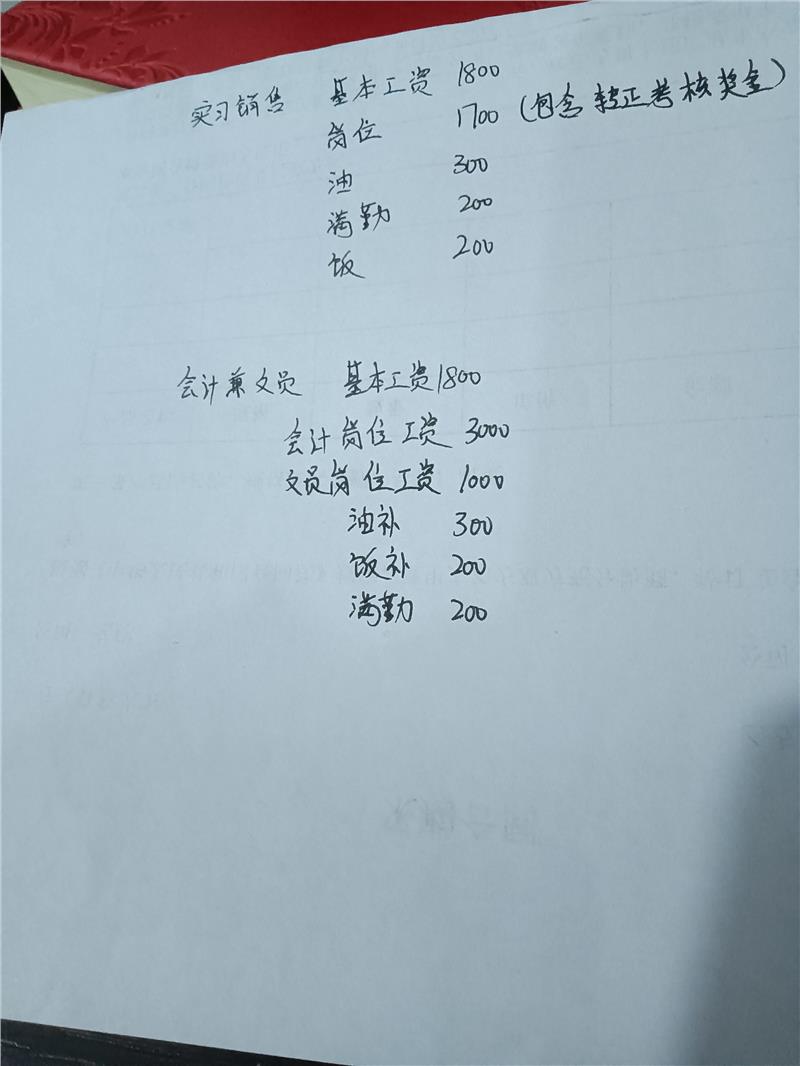 实习销售 基本工资 1800
岗位 1700 (包含转正考核奖金)
油 300
满勤 200
饭 200
会计兼文员 基本工资1800
会计岗位工资 3000
文员岗位工资 1000
油补 300
饭补 200
满勤 200